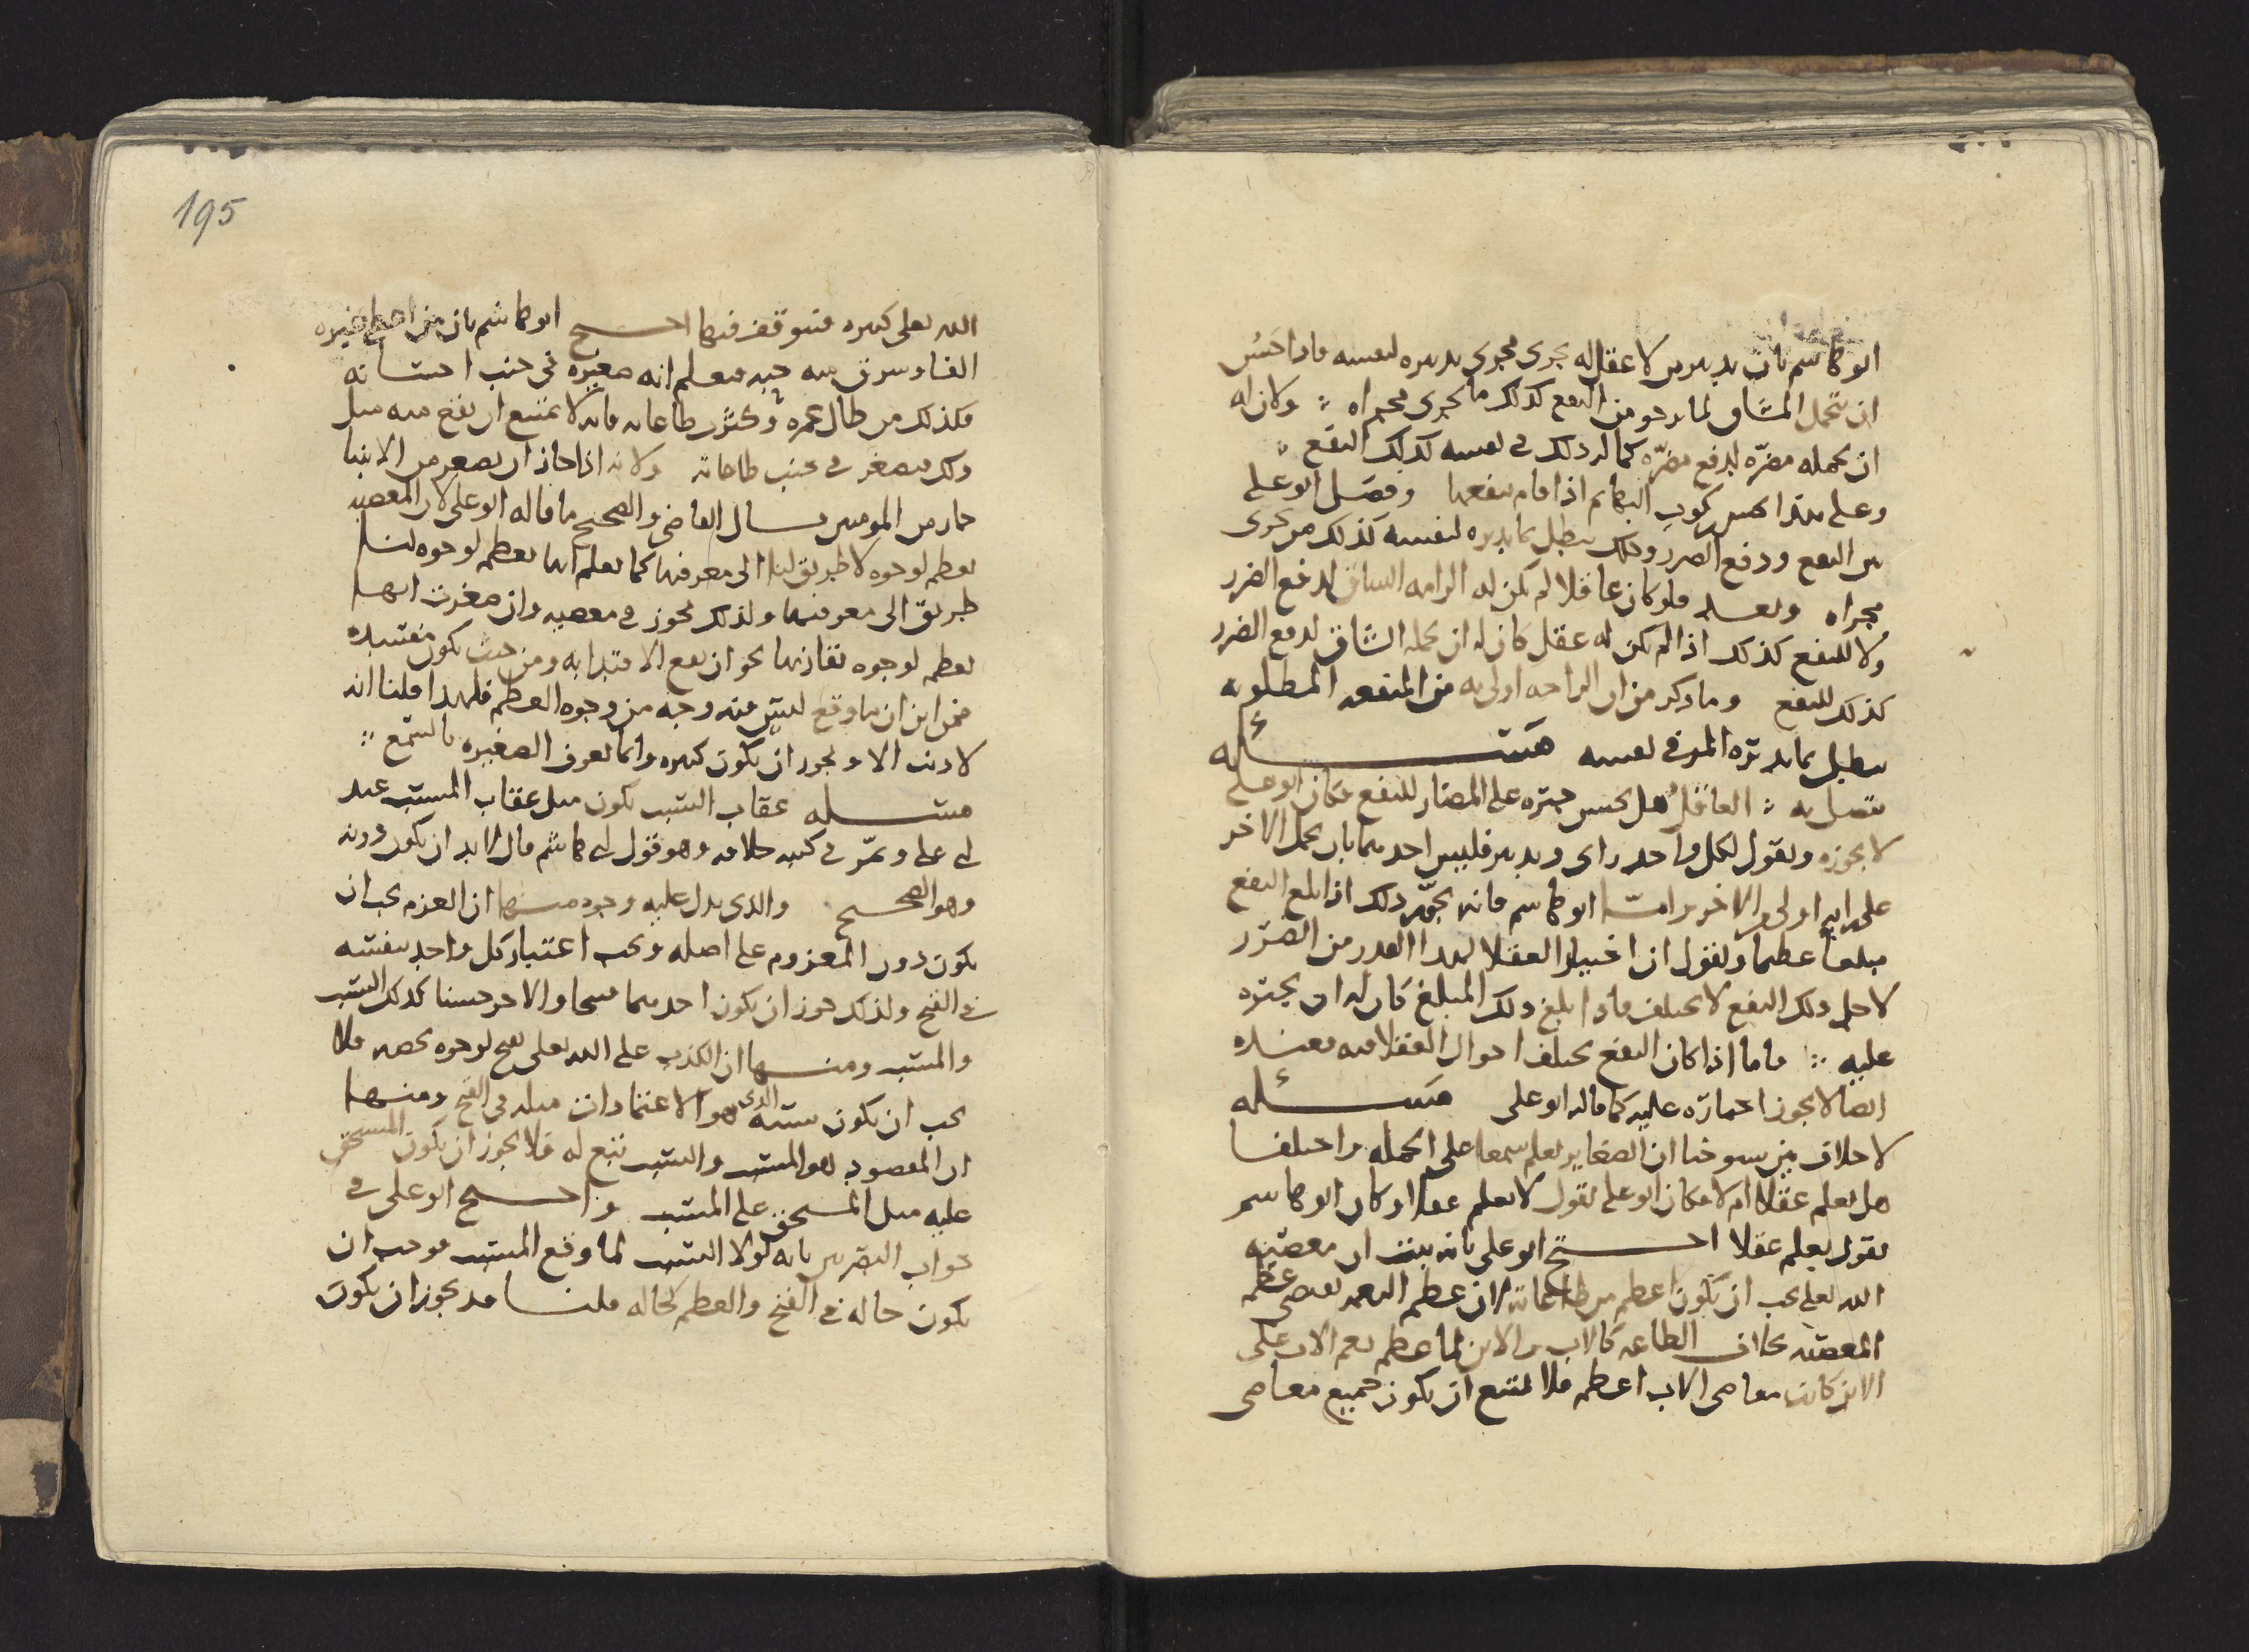 ابو هاشم بان تدبير من لا عقل له يجرى مجرى تدبيره لنفسه فاذا حَسُن
ان يتحمل المشاق لما يرجو من النفع كذلك ما يجرى مجراه ؛ وكان له
ان يحمله مضرّه لدفع مضرّه كما له ذلك فى نفسه كذلك النفع ؛
وعلى هذا يحسن ركوب البهائم اذا قام بنفعها وفصَل ابو على
بين النفع ودفع الضرر وذلك يبطل بما يدبره لنفسه كذلك من يجرى
مجراه وبعد فلو كان عاقلا لم يكن له الزامه المشاق لدفع الضرر
ولا للنفع كذلك اذا لم يكن له عقل كان له ان يحمله المشاق لدفع الضرر
كذلك للنفع وما ذكر من ان الراحه اولى به من المنفعه المطلوبه
يبطل بما يدبره المرء فى نفسه مسئله
تتصل به ؛ العاقل هل يحسن جبره على المضار للنفع فكان ابو على
لا يجوزه ويقول لكل واحد راى وتدبير فليس احدهما بان يحمل الاخر
على رايه اولى من الاخر وامّا ابو هاشم فانه يجوّز ذلك اذا بلغ النفع
مبلغا عظيما ويقول ان اختيار العقلا لهذا القدر من الضرر
لاجل ذلك النفع لا يختلف فاذا بلغ ذلك المبلغ كان له ان يجبره
عليه ؛ فاما اذا كان النفع يختلف احوال العقلا فيه فعنده
ايضا لا يجوز اجباره عليه كما قاله ابو على مسئله
لا خلاف بين شيوخنا ان الصغاير تعلم سمعا على الجمله واختلفا
هل تعلم عقلا ام لا فكان ابو على يقول لا تعلم عقلا وكان ابو هاشم
يقول تعلم عقلا احتج ابو على بانه يثبت ان معصيه
الله تعالى يجب ان تكون اعظم من طاعاته لان عظم النعم يقتضى عظم
المعصيه بخلاف الطاعه كالاب والابن لما عظم نعم الاب على
الابن كانت معاصى الاب اعظم فلا يمتنع ان يكون جميع معاصى
195
الله تعالى كبيره فتوقف فيها احتج ابو هاشم بان من
الفا وسرق منه حبه فعلم انه صغيره فى جنب احسانه
فكذلك من طال عمره وكثرت طاعاته فانه لا يمتنع ان يقع منه مثل
ذلك فيصغر فى جنب طاعاته ولانه اذا جاز ان يصغر من الانبيا
جاز من المومنين قال القاضى والصحيح ما قاله ابو على لان المعصيه
تعظم لوجوه لا طريق لنا الى معرفتها كما نعلم انها تعظم لوجوه لنا
طريق الى معرفتها ولذلك يجوز فى معصيه وان صغرت انها
تعظم لوجوه تقارنها نحو ان يقع الاقتدا به ومن حيث تكون مفسده
فمن اين ان ما وقع ليس فيه وجه من وجوه العظم فلهذا قلنا انه
لا ذنب الا ويجوز ان يكون كبيره وانما تعرف الصغيره بالسمع ؛
مسئله عقاب السبب يكون مثل عقاب المسبب عند
ابى على ومرّ فى كتبه خلافه وهو قول ابى هاشم قال لا بد ان يكون دونه
وهو الصحيح والذى يدل عليه وجوه منها ان العزم يجب ان
يكون دون المعزوم على اصله ويجب اعتبار كل واحد بنفسه
فى القبح ولذلك جوز ان يكون احدهما قبيحا والاخر حسنا كذلك السبب
والمسبب ومنها ان الكذب على الله تعالى يقبح لوجوه تخصه فلا
يجب ان يكون سببه الذى هو الاعتمادات مثله فى القبح ومنها
ان المقصود هو المسبب والسبب تبع له فلا يجوز ان يكون المستحق
عليه مثل المستحق على المسبب واحتج ابو على فى
جواب البصريين بانه لولا السبب لما وقع المسبب فوجب ان
يكون حاله فى القبح والعظم كحاله قلنا قد يجوز ان يكون